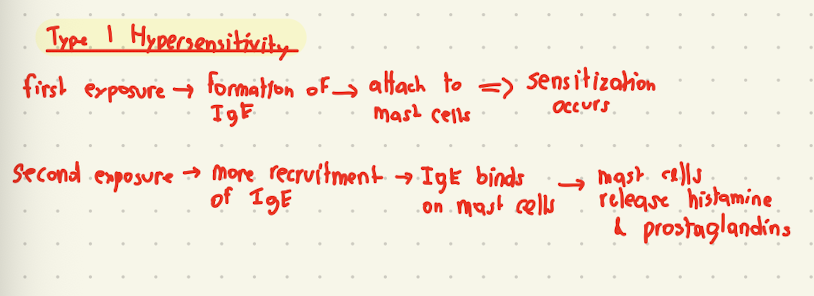 Type 1 Hypersensitivity
first exposure → formation of → attach to => sensitization
IgE mast cells occurs
second exposure → more recruitment → IgE binds → mast cells
of IgE on mast cells release histamine
& prostaglandins